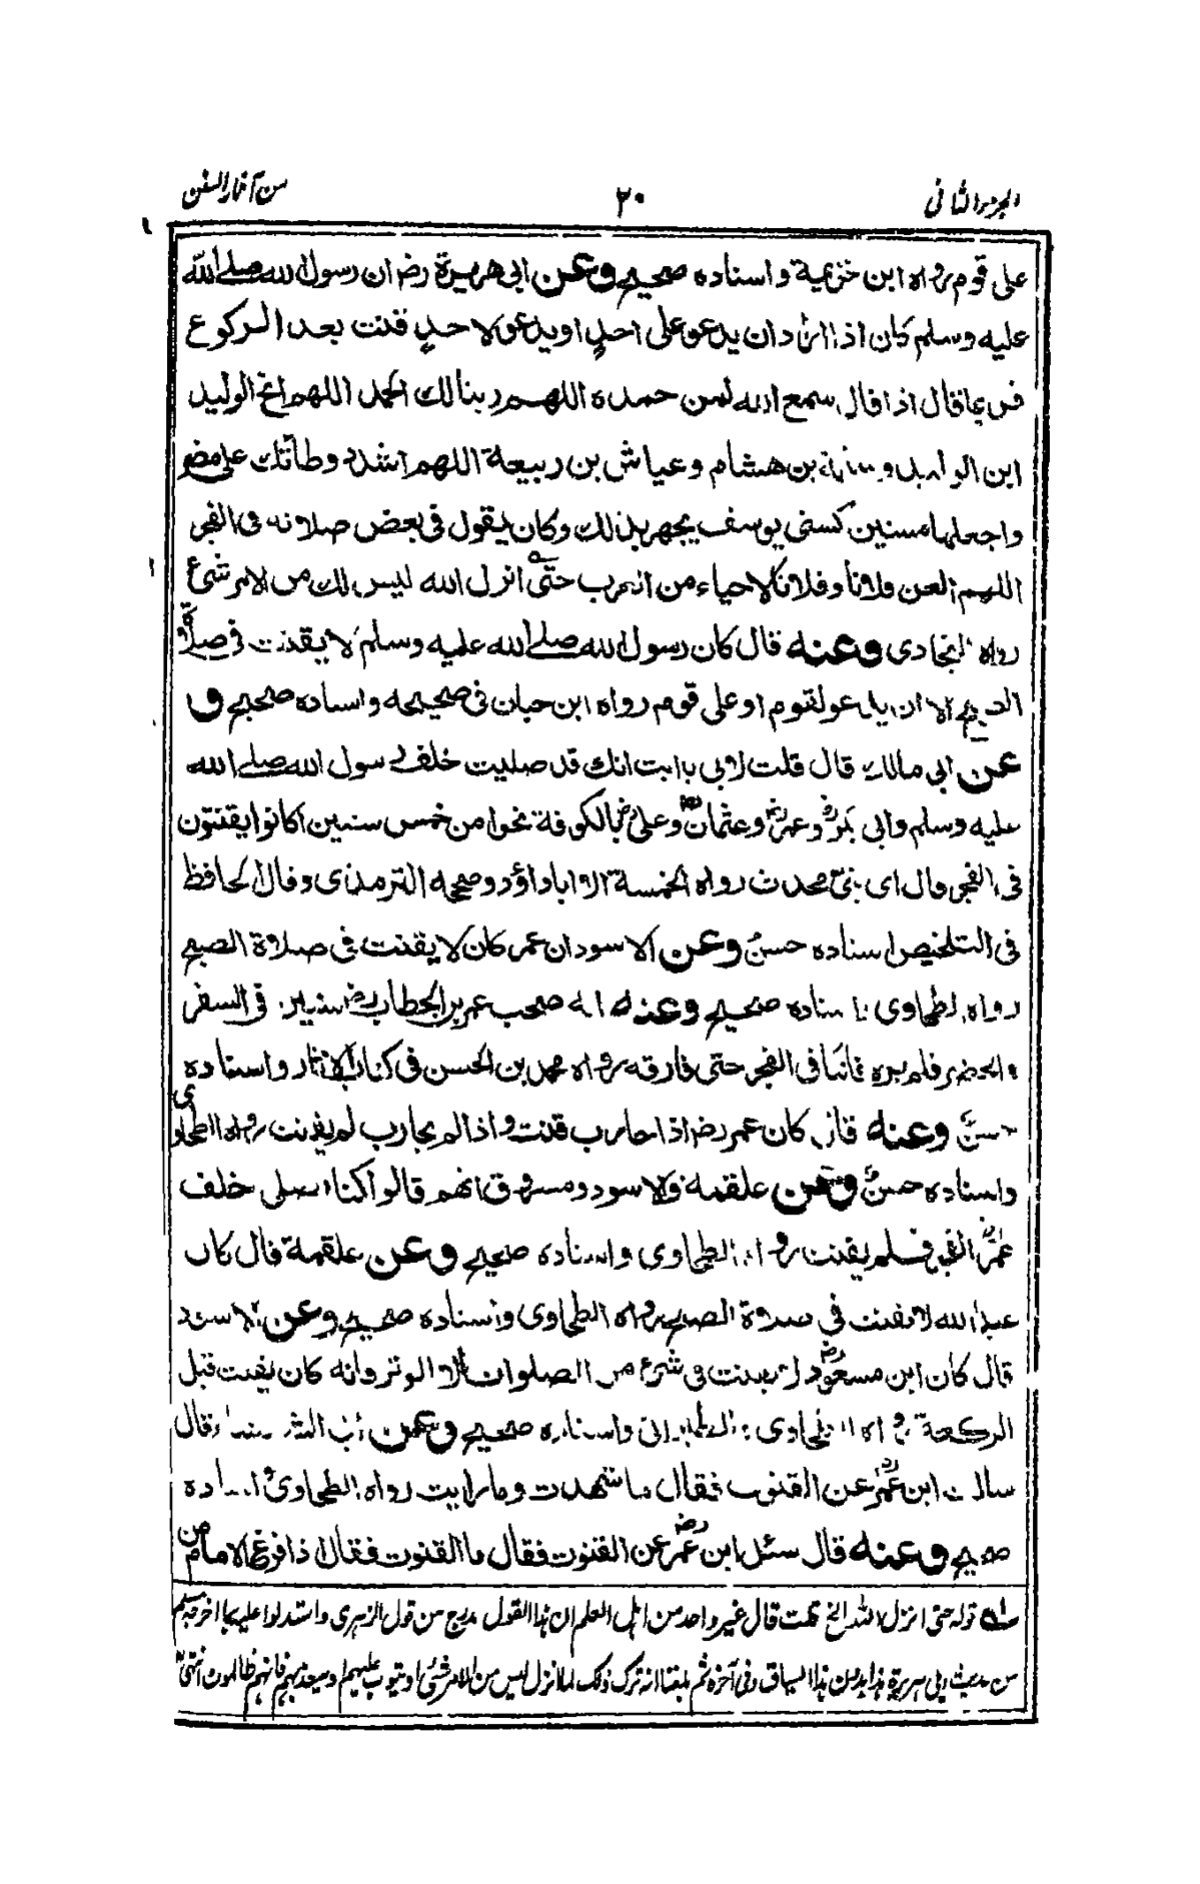 الجزء الثانى ٢٠ من آثار السنن
على قوم رواه ابن خزيمة واسناده صحيح وعن ابى هريرة رض ان رسول الله صلى الله
عليه وسلم كان اذا اراد ان يدعو على احدٍ او يدعو لاحدٍ قنت بعد الركوع
فربما قال اذا قال سمع الله لمن حمده اللهم ربنا لك الحمد اللهم انج الوليد
ابن الوليد وسلمة بن هشام وعياش بن ربيعة اللهم اشدد وطأتك على مضر
واجعلها سنين كسنى يوسف يجهر بذلك وكان يقول فى بعض صلاته فى الفجر
اللهم العن فلانا وفلانا لاحياء من العرب حتى انزل الله ليس لك من الامر شئ
رواه البخارى وعنه قال كان رسول الله صلى الله عليه وسلم لا يقنت فى صلاة
الصبح الا ان يدعو لقوم او على قوم رواه ابن حبان فى صحيحه واسناده صحيح و
عن ابى مالك قال قلت لابى يا ابت انك قد صليت خلف رسول الله صلى الله
عليه وسلم وابى بكر رض وعمر رض وعثمان رض وعلى رض بالكوفة نحوا من خمس سنين اكانوا يقنتون
فى الفجر قال اى بنى محدث رواه الخمسة الا اباداؤد وصححه الترمذى وقال الحافظ
فى التلخيص اسناده حسن وعن الاسود ان عمر كان لا يقنت فى صلاة الصبح
رواه الطحاوى باسناده صحيح وعنه انه صحب عمر بن الخطاب رض سنين فى السفر
والحضر فلم يره قانتا فى الفجر حتى فارقه رواه محمد بن الحسن فى كتاب الآثار واسناده
حسن وعنه قال كان عمر رض اذا حارب قنت واذا لم يحارب لم يقنت رواه الطحاوى
واسناده حسن وعن علقمة والاسود ومسروق انهم قالوا كنا نصلى خلف
عمر رض الفجر فلم يقنت رواه الطحاوى واسناده صحيح وعن علقمة قال كان
عبد الله لا يقنت فى صلاة الصبح رواه الطحاوى واسناده صحيح وعن الاسود
قال كان ابن مسعود رض لا يقنت فى شئ من الصلوات الا الوتر وانه كان يقنت قبل
الركعة رواه الطحاوى والطبرانى واسناده صحيح وعن ابى الشعثاء قال
سالت ابن عمر رض عن القنوت فقال ما شهدت وما رايت رواه الطحاوى واسناده
صحيح وعنه قال سئل ابن عمر رض عن القنوت فقال ما القنوت فقال اذا فرغ الامام من
له قوله حتى انزل الله الخ قلت قال غير واحد من اهل العلم ان هذا القول مدرج من قول الزهرى واستدلوا عليه بما اخرجه مسلم
من حديث ابى هريرة هذا بدون هذا السياق وفى آخره ثم بلغنا انه ترك ذلك لما نزل ليس من الامر شئ او يتوب عليهم او يعذبهم فانهم ظالمون انتهى